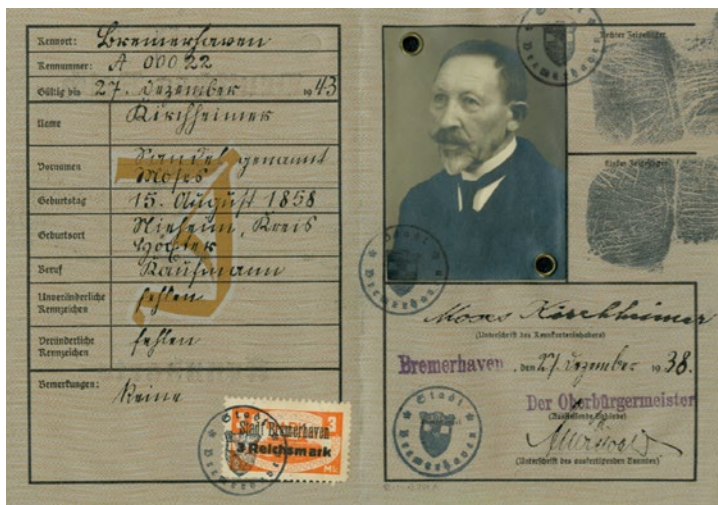 Kennort: Bremerhaven
Kennummer: A 00022
Gültig bis 27. Dezember 1943
Name Kirchheimer
Vornamen Mandel genannt
Moses
Geburtstag 15. August 1858
Geburtsort Nieheim, Kreis
Höxter
Beruf Kaufmann
Unveränderliche
Kennzeichen fehlen
Veränderliche
Kennzeichen fehlen
Bemerkungen: Keine
J
3
Stadt Bremerhaven
3 Reichsmark
Mk
Stadt Bremerhaven
Rechter Zeigefinger
Linker Zeigefinger
Stadt Bremerhaven
Stadt Bremerhaven
Moses Kirchheimer
(Unterschrift des Kennkarteninhabers)
Bremerhaven, den 27. Dezember 1938.
Der Oberbürgermeister
(Ausstellende Behörde)
Stadt Bremerhaven
(Unterschrift des ausfertigenden Beamten)